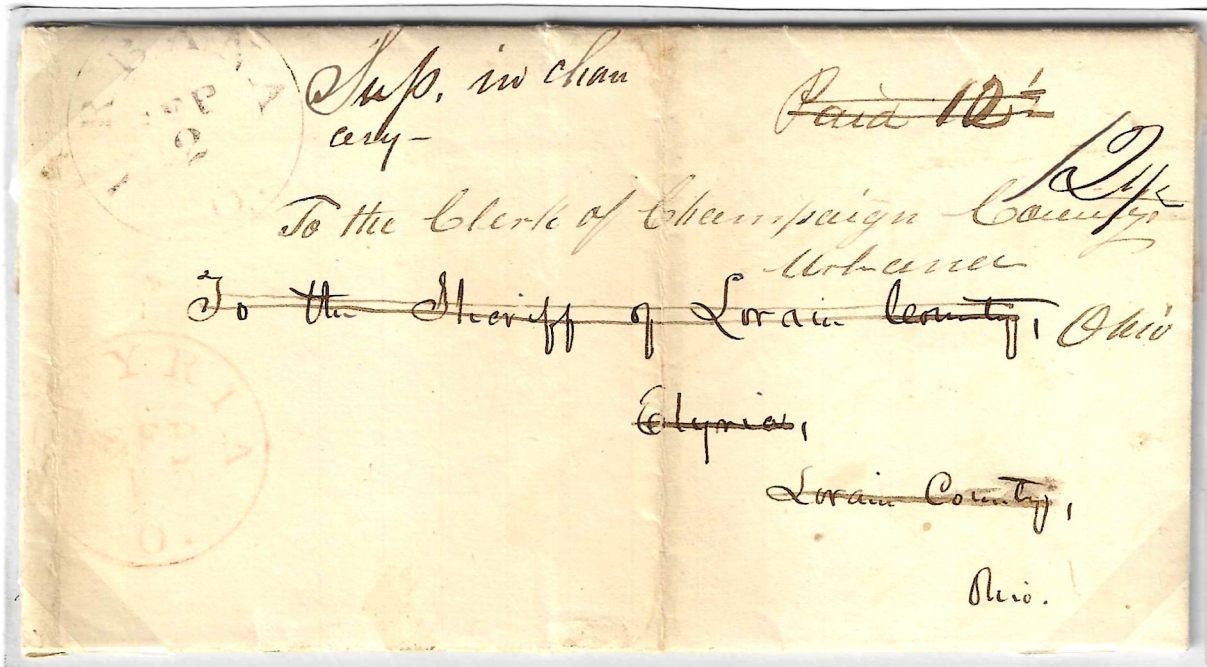 URBANA
FEB
2
O.
Sup. in chan
cery-
Paid 12½
12½
To the Clerk of Champaign County,
Urbana
Ohio
To the Sheriff of Lorain County,
Elyria,
Lorain County,
Ohio.
YRIA
FEB
O.